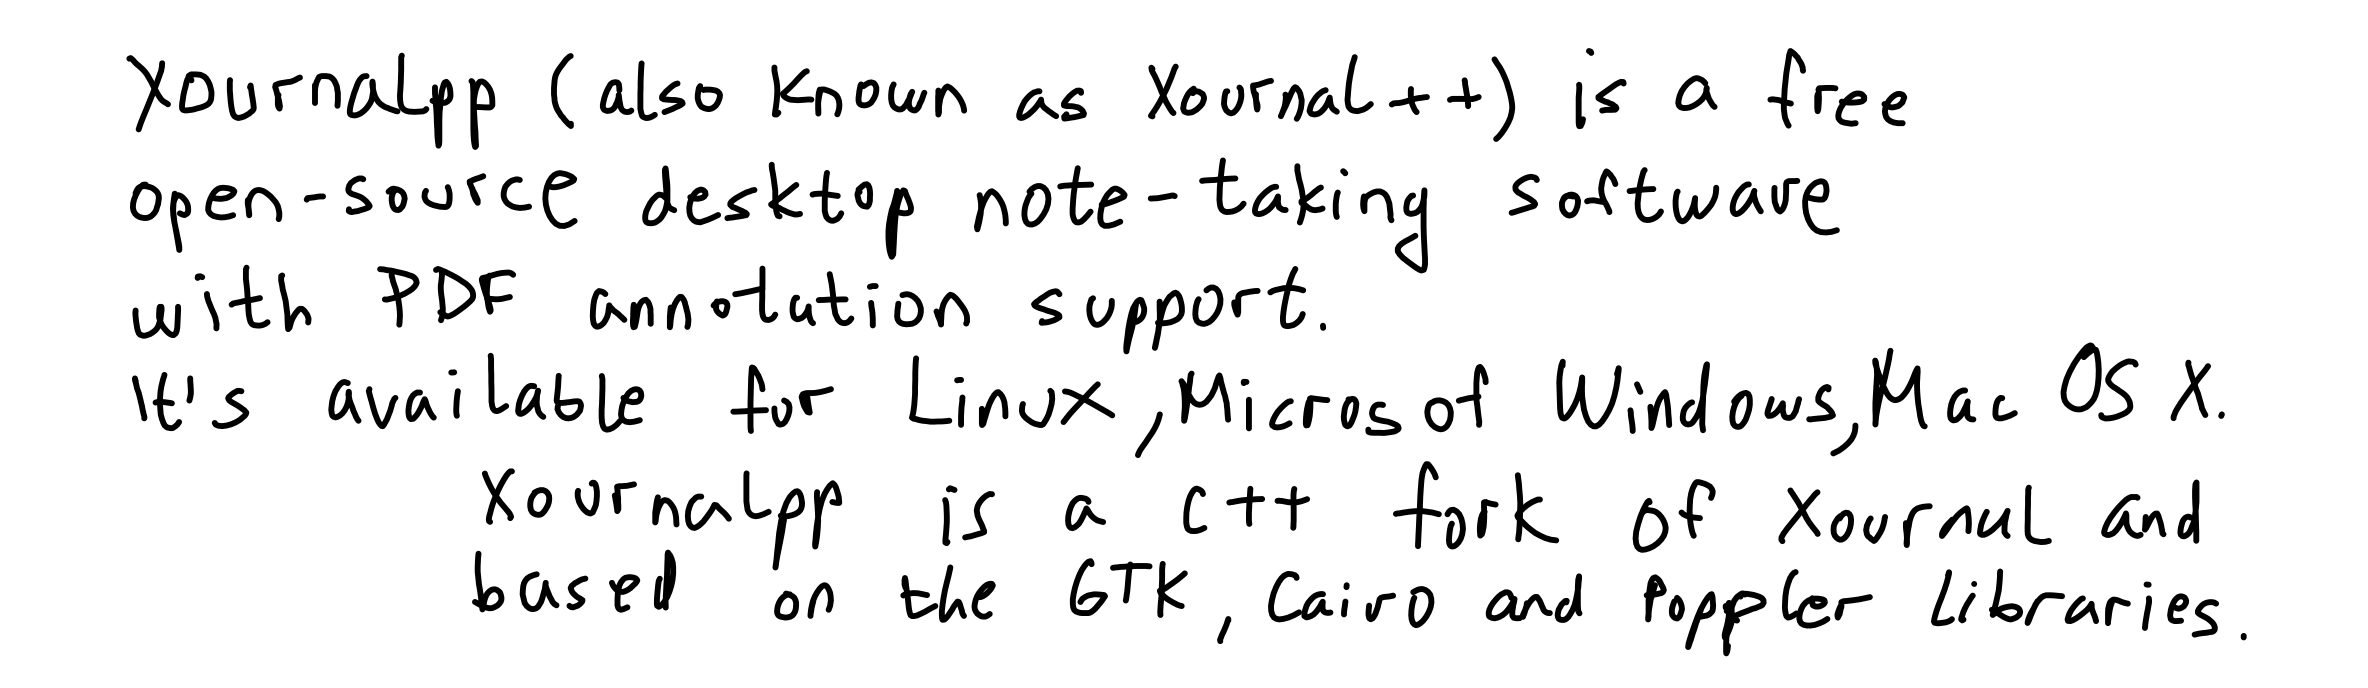 Xournalpp (also known as Xournal++) is a free
open-source desktop note-taking software
with PDF annotation support.
It's available for Linux, Microsof Windows, Mac OS X.
Xournalpp is a C++ fork of Xournal and
based on the GTK, Cairo and Poppler Libraries.